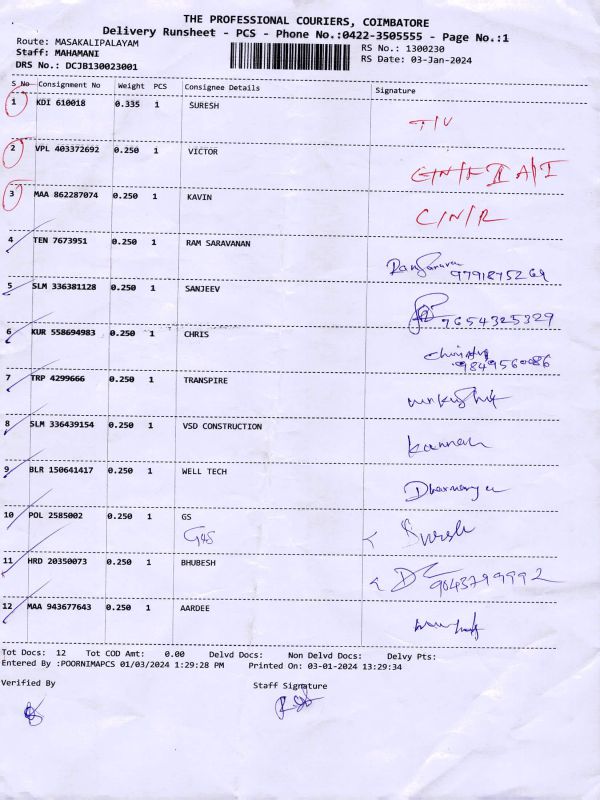 THE PROFESSIONAL COURIERS, COIMBATORE
Delivery Runsheet - PCS - Phone No.:0422-3505555 - Page No.:1
Route: MASAKALIPALAYAM RS No.: 1300230
Staff: MAHAMANI RS Date: 03-Jan-2024
DRS No.: DCJB130023001
S No Consignment No Weight PCS Consignee Details Signature
1 KDI 610018 0.335 1 SURESH
2 VPL 403372692 0.250 1 VICTOR
3 MAA 862287074 0.250 1 KAVIN C/N/R
4 TEN 7673951 0.250 1 RAM SARAVANAN
9791875269
5 SLM 336381128 0.250 1 SANJEEV
9654325329
6 KUR 558694983 0.250 1 CHRIS
9849560086
7 TRP 4299666 0.250 1 TRANSPIRE
8 SLM 336439154 0.250 1 VSD CONSTRUCTION Kannan
9 BLR 150641417 0.250 1 WELL TECH
10 POL 2585002 0.250 1 GS Suresh
11 HRD 20350073 0.250 1 BHUBESH
9043799992
12 MAA 943677643 0.250 1 AARDEE
Tot Docs: 12 Tot COD Amt: 0.00 Delvd Docs: Non Delvd Docs: Delvy Pts:
Entered By :POORNIMAPCS 01/03/2024 1:29:28 PM Printed On: 03-01-2024 13:29:34
Verified By Staff Signature